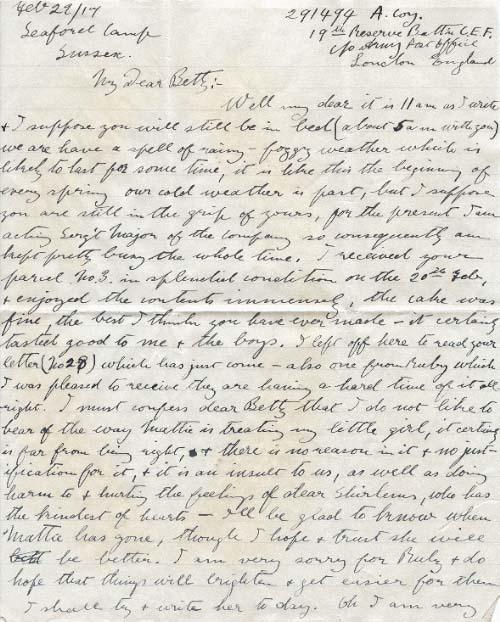 Feb 22/17
291494 A. Coy.
Seaford Camp
19th Reserve Battn C.E.F.
Sussex.
c/o Army Post Office
London England
My Dear Betty:-
Well my dear it is 11 am as I write
& I suppose you will still be in bed (about 5 am with you)
we are have a spell of rainy - foggy weather which is
likely to last for some time, it is like this the beginning of
every spring our cold weather is past, but I suppose
you are still in the grip of yours, for the present I am
acting Sergt Major of the company so consequently am
kept pretty busy the whole time. I received your
parcel No. 3. in splendid condition on the 20th Feb,
& enjoyed the contents immensely, the cake was
fine, the best I think you have ever made - it certainly
tasted good to me & the boys. I left off here to read your
letter (No 28) which has just come - also one from Ruby which
I was pleased to receive they are having a hard time of it all
right. I must confess dear Betty that I do not like to
hear of the way Mattie is treating my little girl, it certainly
is far from being right, & there is no reason in it & no just-
ification for it, & it is an insult to us, as well as doing
harm to & hurting the feelings of dear who has
the kindest of hearts - I'll be glad to know when
Mattie has gone, though I hope & trust she will
be better. I am very sorry for Ruby & do
hope that things will brighten & get easier for them
I shall try & write her to day. Oh I am very